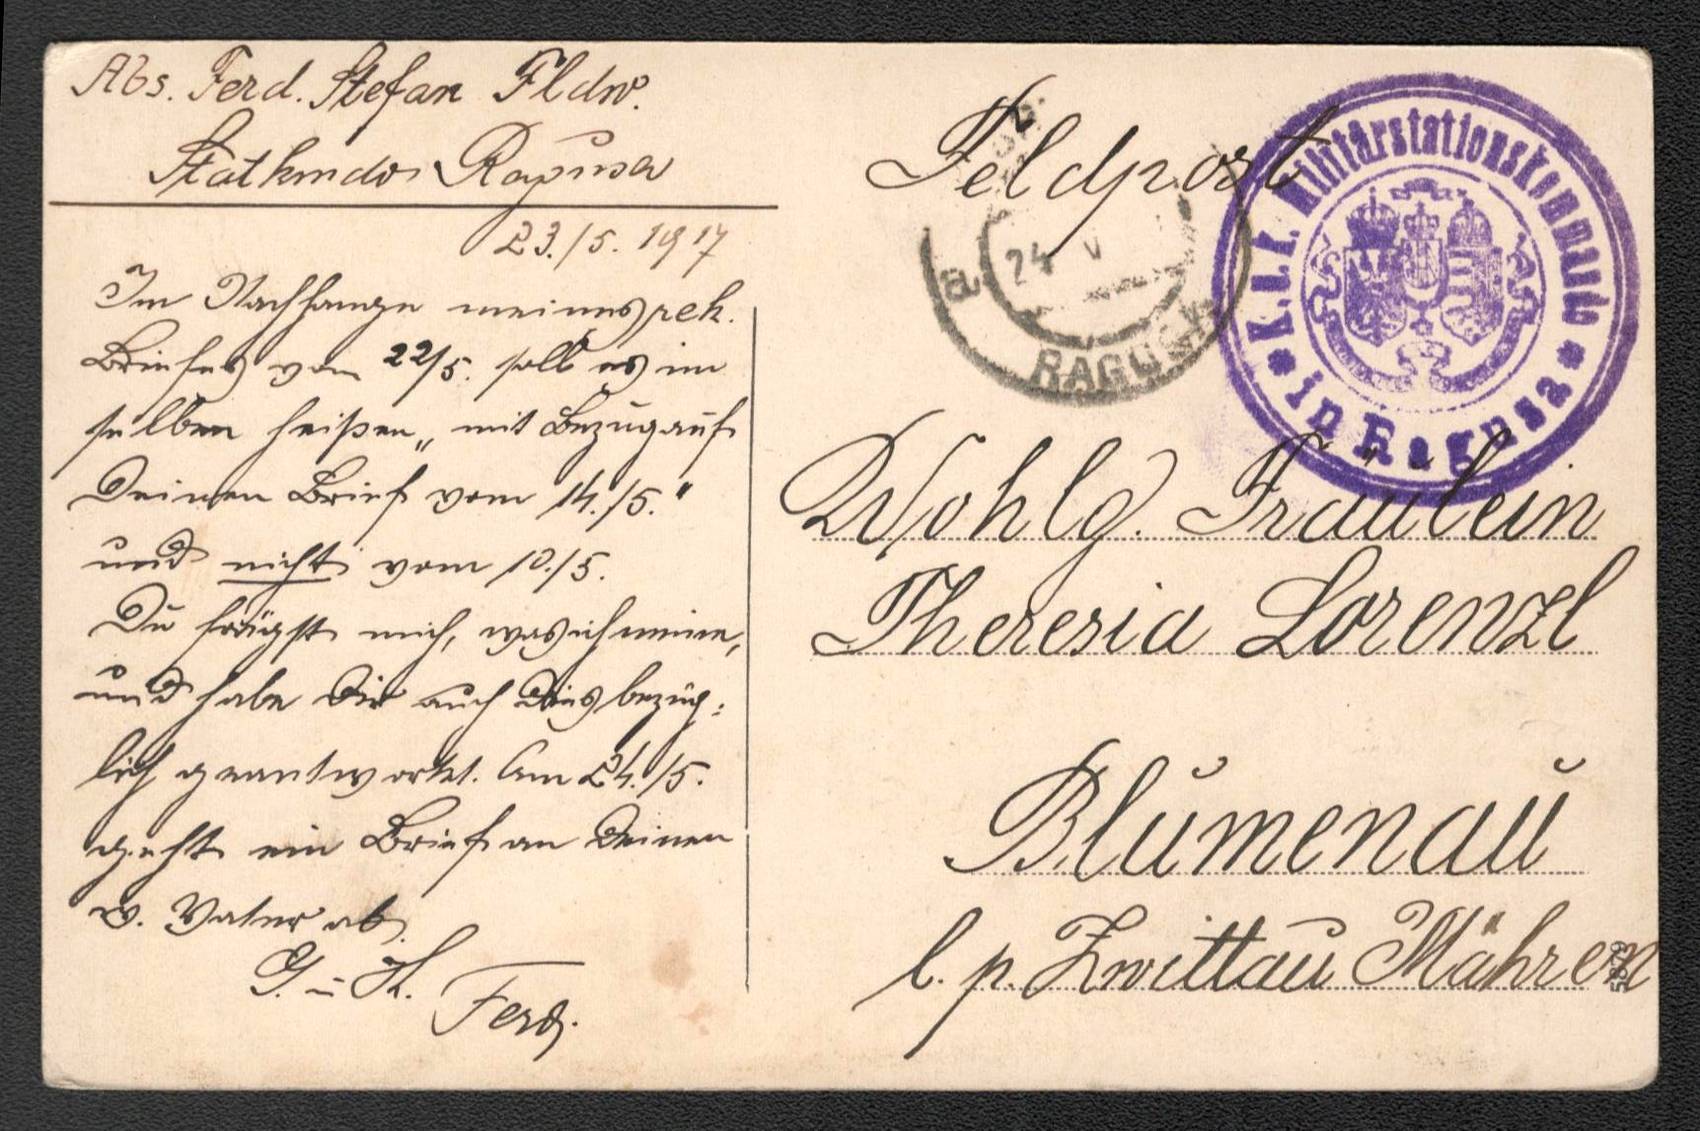 Abs. Ferd. Stefan Fldw.
Statkmdo Ragusa
23./5. 1917
Im Nachhange meines rek.
Briefes vom 22/5. soll es im
selben heißen „mit Bezug auf
Deinen Brief vom 14./5."
und nicht vom 10./5.
Du frägst mich, was ich meine,
und habe Dir auch diesbezüg:
lich geantwortet. Am 24./5.
geht ein Brief an Deinen
w. Vater ab.
G. u. K.
Ferd.
Feldpost
a
24 V
RAGUSA
K.u.K. Militärstationskommando
in Ragusa
Wohlg. Fräulein
Theresia Lorenzl
Blumenau
b. p. Zwittau Mähren